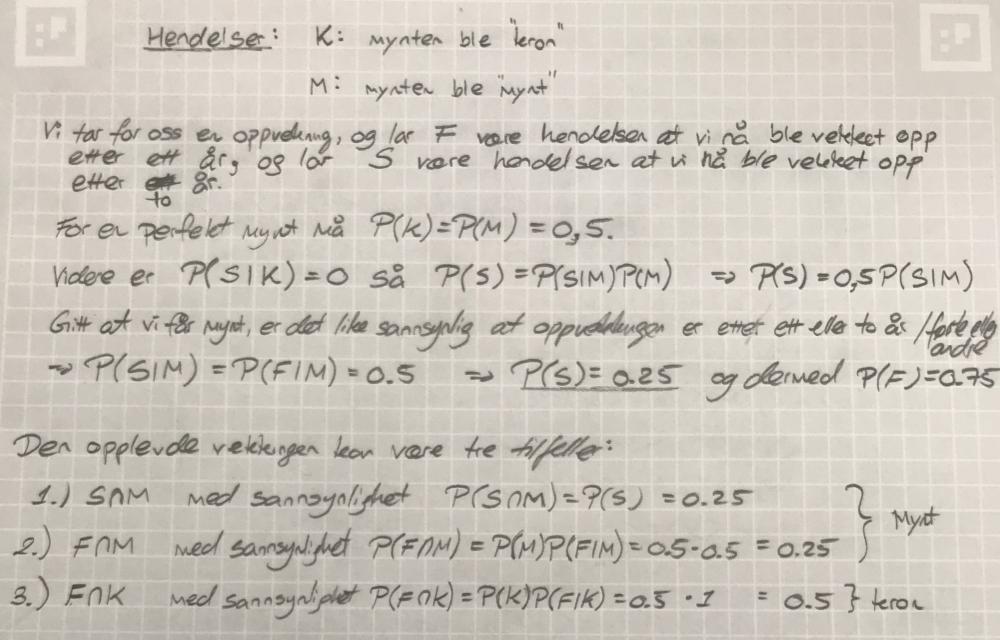 Hendelser: K: mynten ble "kron"
M: mynten ble "mynt"
Vi tar for oss en oppvekning, og lar F være hendelsen at vi nå ble vekket opp
etter ett år, og lar S være hendelsen at vi nå ble vekket opp
etter to år.
For en perfekt mynt må P(K)=P(M)=0,5.
Videre er P(S|K)=0 så P(S)=P(S|M)P(M) ⇒ P(S)=0,5P(S|M)
Gitt at vi får mynt, er det like sannsynlig at oppvekkingen er etter ett eller to år /første eller
andre
⇒ P(S|M)=P(F|M)=0.5 ⇒ P(S)=0.25 og dermed P(F)=0.75
Den opplevde vekkingen kan være tre tilfeller:
1.) S∩M med sannsynlighet P(S∩M)=P(S)=0.25
Mynt
2.) F∩M med sannsynlighet P(F∩M)=P(M)P(F|M)=0.5·0.5=0.25
3.) F∩K med sannsynlighet P(F∩K)=P(K)P(F|K)=0.5·1=0.5} kron